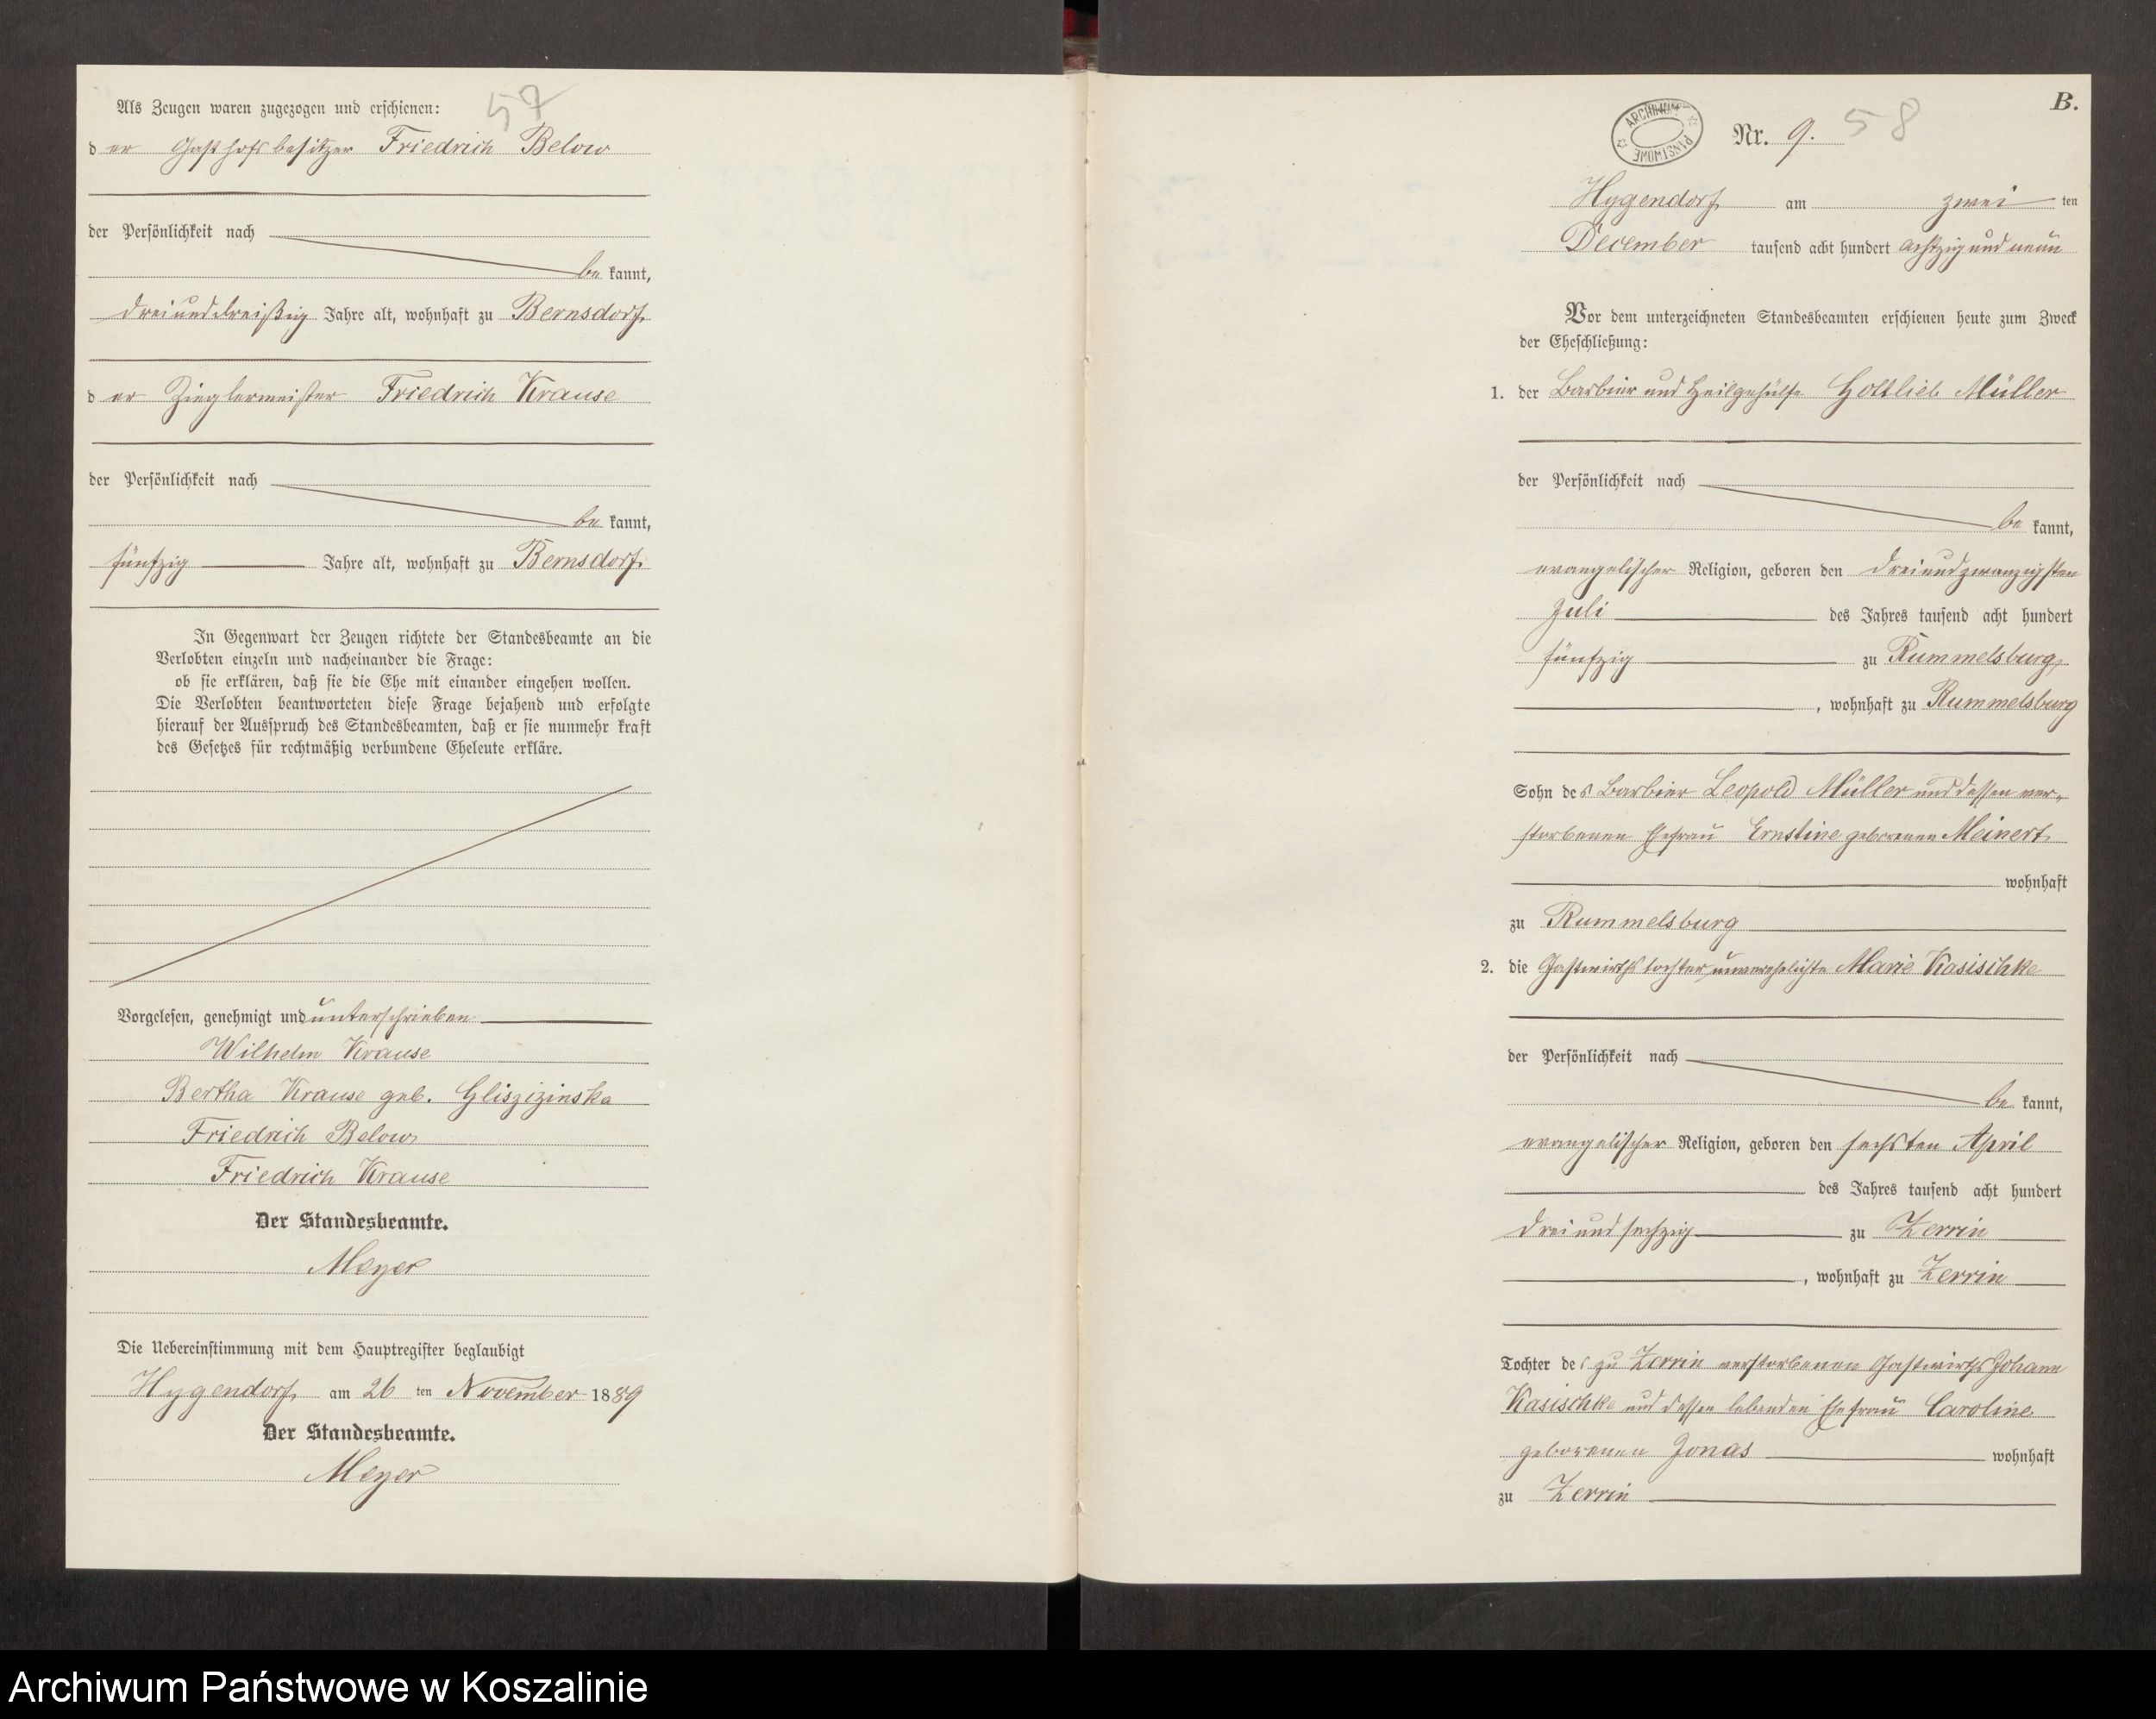 57
Als Zeugen waren zugezogen und erschienen:
der Gasthofsbesitzer Friedrich Below
der Persönlichkeit nach
bekannt,
dreiunddreißig Jahre alt, wohnhaft zu Bernsdorf
der Zieglermeister Friedrich Krause
der Persönlichkeit nach
bekannt,
fünfzig Jahre alt, wohnhaft zu Bernsdorf
In Gegenwart der Zeugen richtete der Standesbeamte an die
Verlobten einzeln und nacheinander die Frage:
ob sie erklären, daß sie die Ehe mit einander eingehen wollen.
Die Verlobten beantworteten diese Frage bejahend und erfolgte
hierauf der Ausspruch des Standesbeamten, daß er sie nunmehr kraft
des Gesetzes für rechtmäßig verbundene Eheleute erkläre.
Vorgelesen, genehmigt und unterschrieben
Wilhelm Krause
Bertha Krause geb. Gliszizinska
Friedrich Below
Friedrich Krause
Der Standesbeamte.
Meyer
Die Uebereinstimmung mit dem Hauptregister beglaubigt
Hygendorf am 26ten November 1889
Der Standesbeamte.
Meyer
B.
ARCHIWUM PAŃSTWOWE
Nr. 9. 58
Hygendorf am zweiten
December tausend acht hundert achtzig und neun
Vor dem unterzeichneten Standesbeamten erschienen heute zum Zweck
der Eheschließung:
1. der Barbier und Heilgehülfe Gottlieb Müller
der Persönlichkeit nach
bekannt,
evangelischer Religion, geboren den dreiundzwanzigsten
Juli des Jahres tausend acht hundert
fünfzig zu Rummelsburg,
, wohnhaft zu Rummelsburg
Sohn des Barbier Leopold Müller und dessen ver-
storbenen Ehefrau Ernstine geborenen Meinert
wohnhaft
zu Rummelsburg
2. die Gastwirthstochter, unverehelichte Marie Kasischke
der Persönlichkeit nach
bekannt,
evangelischer Religion, geboren den sechsten April
des Jahres tausend acht hundert
dreiundsechzig zu Zerrin
, wohnhaft zu Zerrin
Tochter des zu Zerrin verstorbenen Gastwirths Johann
Kasischke und dessen lebenden Ehefrau Caroline
geborenen Jonas wohnhaft
zu Zerrin
Archiwum Państwowe w Koszalinie